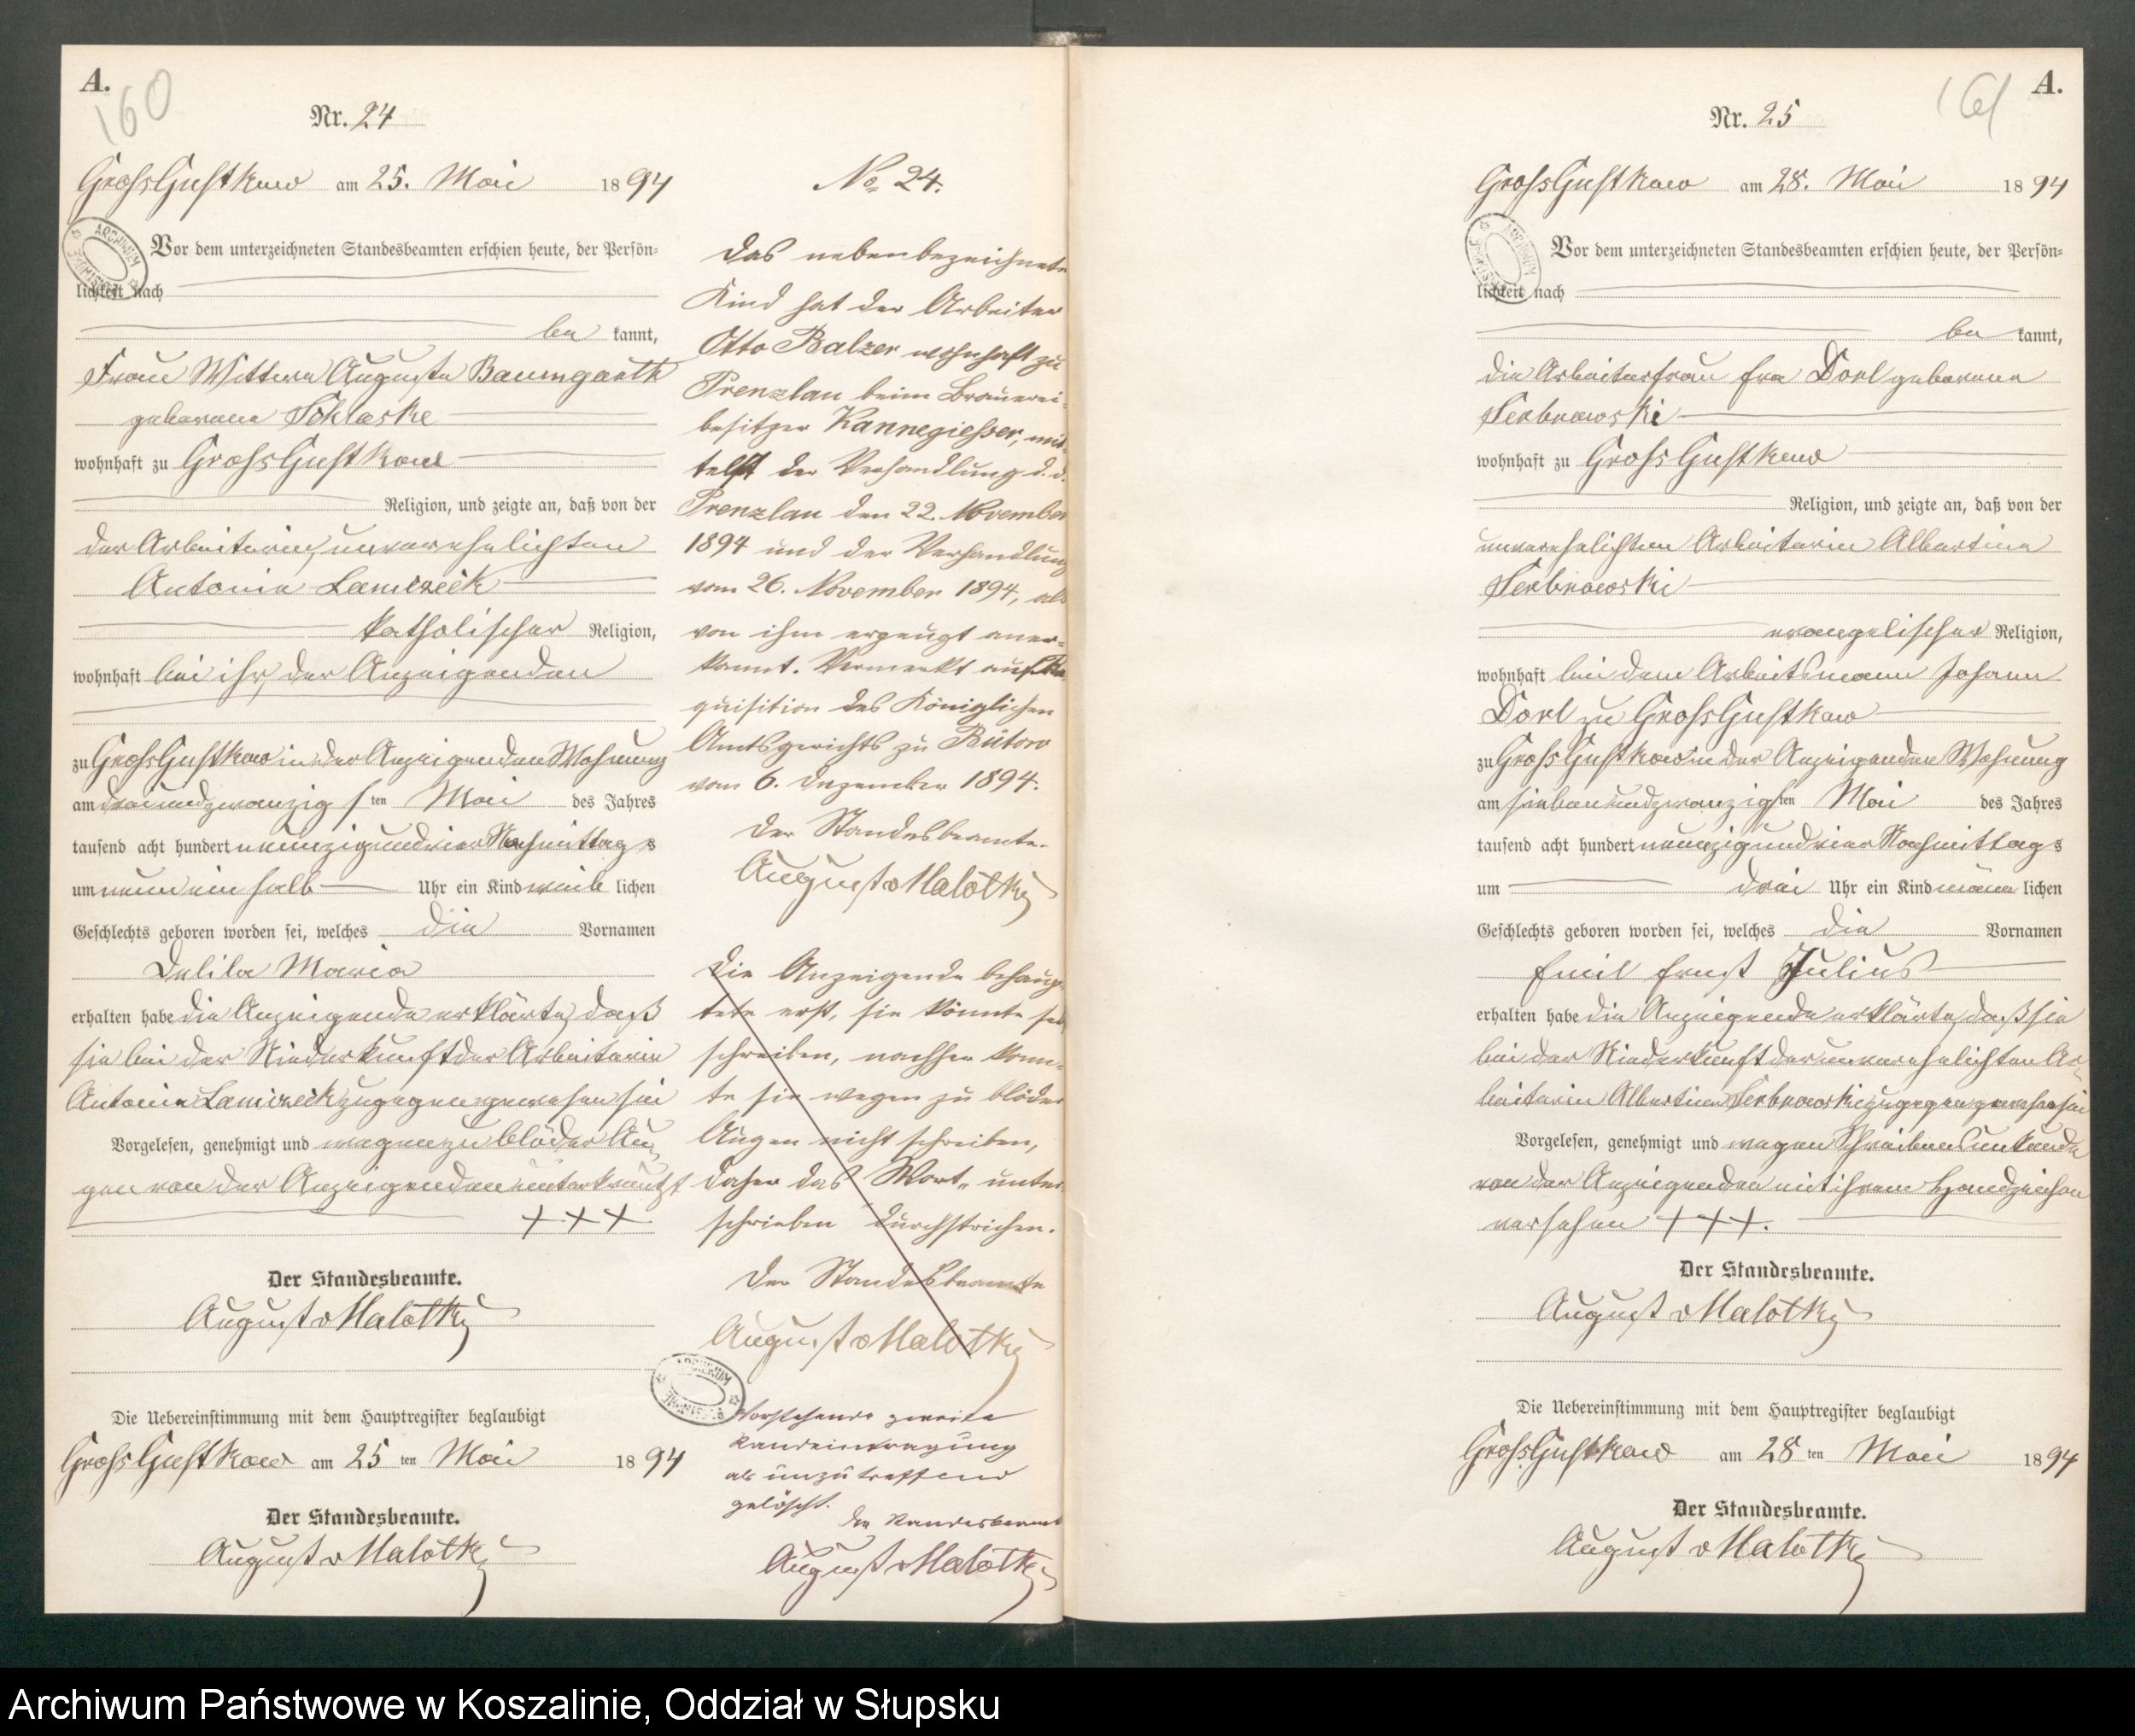 A.
160
Nr. 24
Gross Gustkow am 25. Mai 1894
Vor dem unterzeichneten Standesbeamten erschien heute, der Persön-
lichkeit nach
be kannt,
Frau Wittwe Auguste Baumgarth
geborene Schlaske
wohnhaft zu Gross Gustkow
Religion, und zeigte an, daß von der
der Arbeiterin, unverehelichten
Antonie
katholischer Religion,
wohnhaft bei ihr, der Anzeigenden
zu Gross Gustkow in der Anzeigenden Wohnung
am dreiundzwanzigsten Mai des Jahres
tausend acht hundert neunzig und vier Nachmittags
um neun ein halb Uhr ein Kind weib lichen
Geschlechts geboren worden sei, welches die Vornamen
Delila Maria
erhalten habe die Anzeigende erklärte, daß
sie bei der Niederkunft der Arbeiterin
Antonie zugegen gewesen sei
Vorgelesen, genehmigt und wegen zu blöder Au-
gen von der Anzeigenden unterkreuzt
+++
Der Standesbeamte.
August v Malotky
Die Uebereinstimmung mit dem Hauptregister beglaubigt
Gross Gustkow am 25 ten Mai 1894
Der Standesbeamte.
August v Malotky
No. 24.
Das nebenbezeichnete
Kind hat der Arbeiter
Otto Balzer wohnhaft zu
Prenzlau beim Brauerei-
besitzer Kannegiesser, mit-
telst der Verhandlung d. d.
Prenzlau den 22. November
1894 und der Verhandlung
vom 26. November 1894, als
von ihm erzeugt aner-
kannt. Vermerkt auf Re-
quisition des Königlichen
Amtsgerichts zu Bütow
vom 6. Dezember 1894.
Der Standesbeamte.
August v Malotky
Die Anzeigende behaup-
tete erst, sie könnte
schreiben, nachher konn-
te sie wegen zu blöder
Augen nicht schreiben,
daher das Wort „unter-
schrieben durchstrichen.
Der Standesbeamte
August v Malotky
Vorstehende zweite
Randeintragung
als unzutreffend
gelöscht.
Der Standesbeamte
August v Malotky
161
A.
Nr. 25
Gross Gustkow am 28. Mai 1894
Vor dem unterzeichneten Standesbeamten erschien heute, der Persön-
lichkeit nach
be kannt,
die Arbeiterfrau Dorl geborene
Serbrowski
wohnhaft zu Gross Gustkow
Religion, und zeigte an, daß von der
unverehelichten Arbeiterin Albertine
Serbrowski
evangelischer Religion,
wohnhaft bei dem Arbeitsmann Johann
Dorl zu Gross Gustkow
zu Gross Gustkow in der Anzeigenden Wohnung
am siebenundzwanzigsten Mai des Jahres
tausend acht hundert neunzig und vier Nachmittags
um drei Uhr ein Kind männ lichen
Geschlechts geboren worden sei, welches die Vornamen
Emil Ernst Julius
erhalten habe die Anzeigende erklärte, daß sie
bei der Niederkunft der unverehelichten Ar-
beiterin Albertine Serbrowski zugegen gewesen sei
Vorgelesen, genehmigt und wegen Schreibensunkunde
von der Anzeigenden mit ihrem Handzeichen
versehen +++.
Der Standesbeamte.
August v Malotky
Die Uebereinstimmung mit dem Hauptregister beglaubigt
Gross Gustkow am 28 ten Mai 1894
Der Standesbeamte.
August v Malotky
Archiwum Państwowe w Koszalinie, Oddział w Słupsku